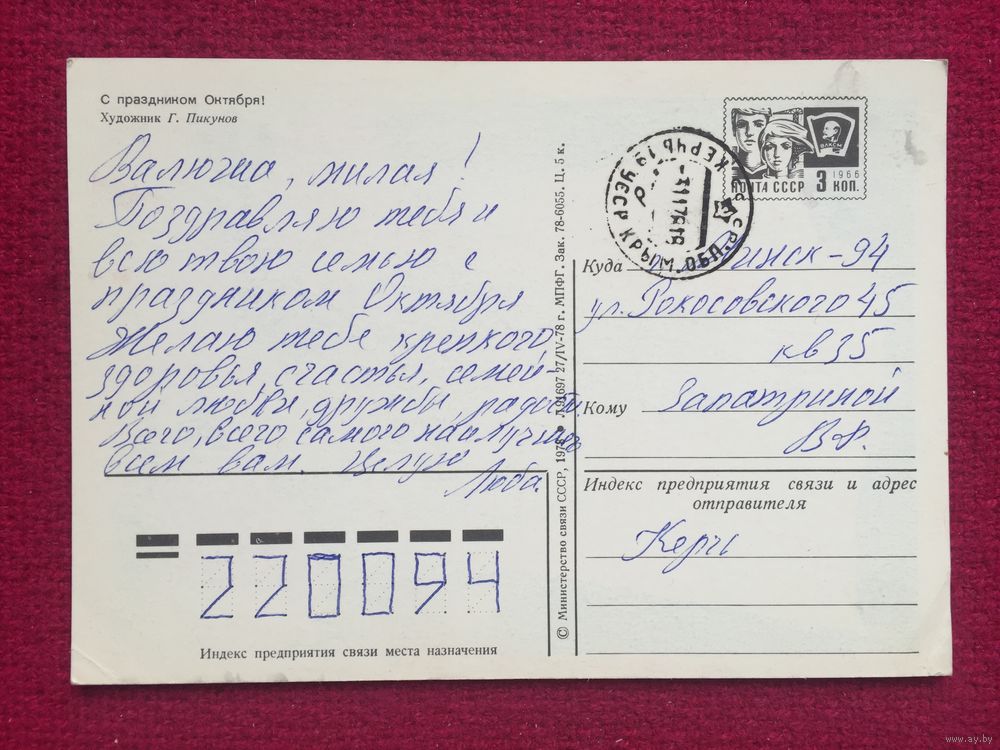 С праздником Октября!
Художник Г. Пикунов
Валючка, милая!
Поздравляю тебя и
всю твою семью с
праздником Октября
Желаю тебе крепкого
здоровья, счастья, семей-
ной любви, дружбы,
Всего, всего самого наилучшего
всем вам. Целую
Люба.
220094
Индекс предприятия связи места назначения
© Министерство связи СССР, 1978. Л 91697 27/IV-78 г. МПФГ. Зак. 78-6055. Ц. 5 к.
ВЛКСМ
1966
ПОЧТА СССР 3 КОП.
КЕРЧЬ 19 УССР КРЫМ. ОБЛ.
Куда Минск-94
ул. Рокосовского 45
кв 35
Кому Запатриной
В.Ф.
Индекс предприятия связи и адрес
отправителя
Керчь